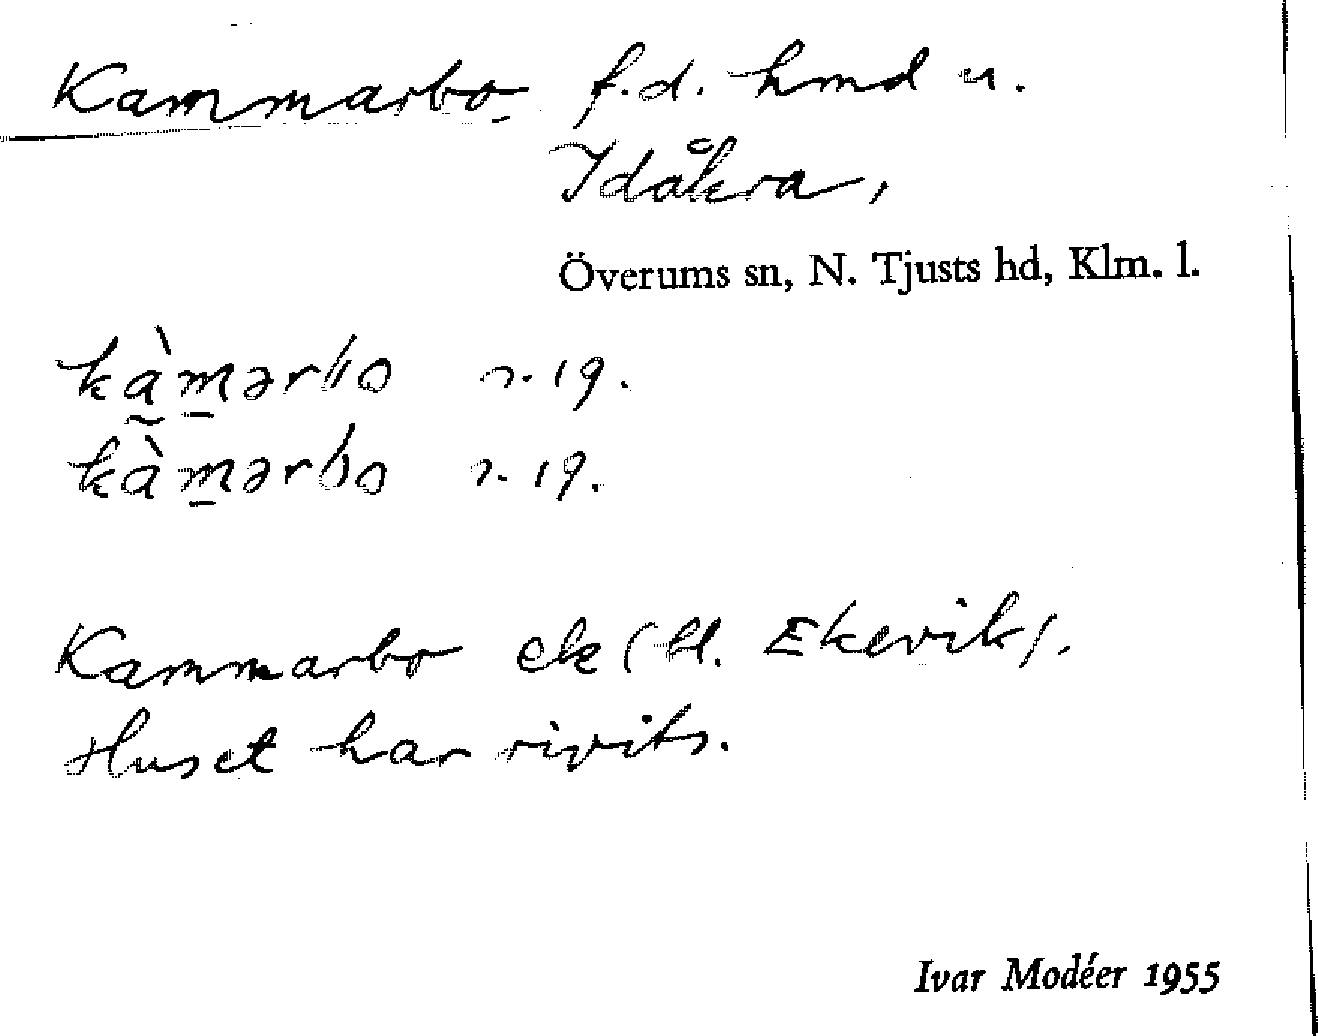 Kammarbo f.d. hmd u.
Idåkra,
Överums sn, N. Tjusts hd, Klm. l.
kàmərbo r. 19.
kàmərbo r. 19.
Kammarbo ek (bl. Ekevik).
Huset har rivits.
Ivar Modéer 1955